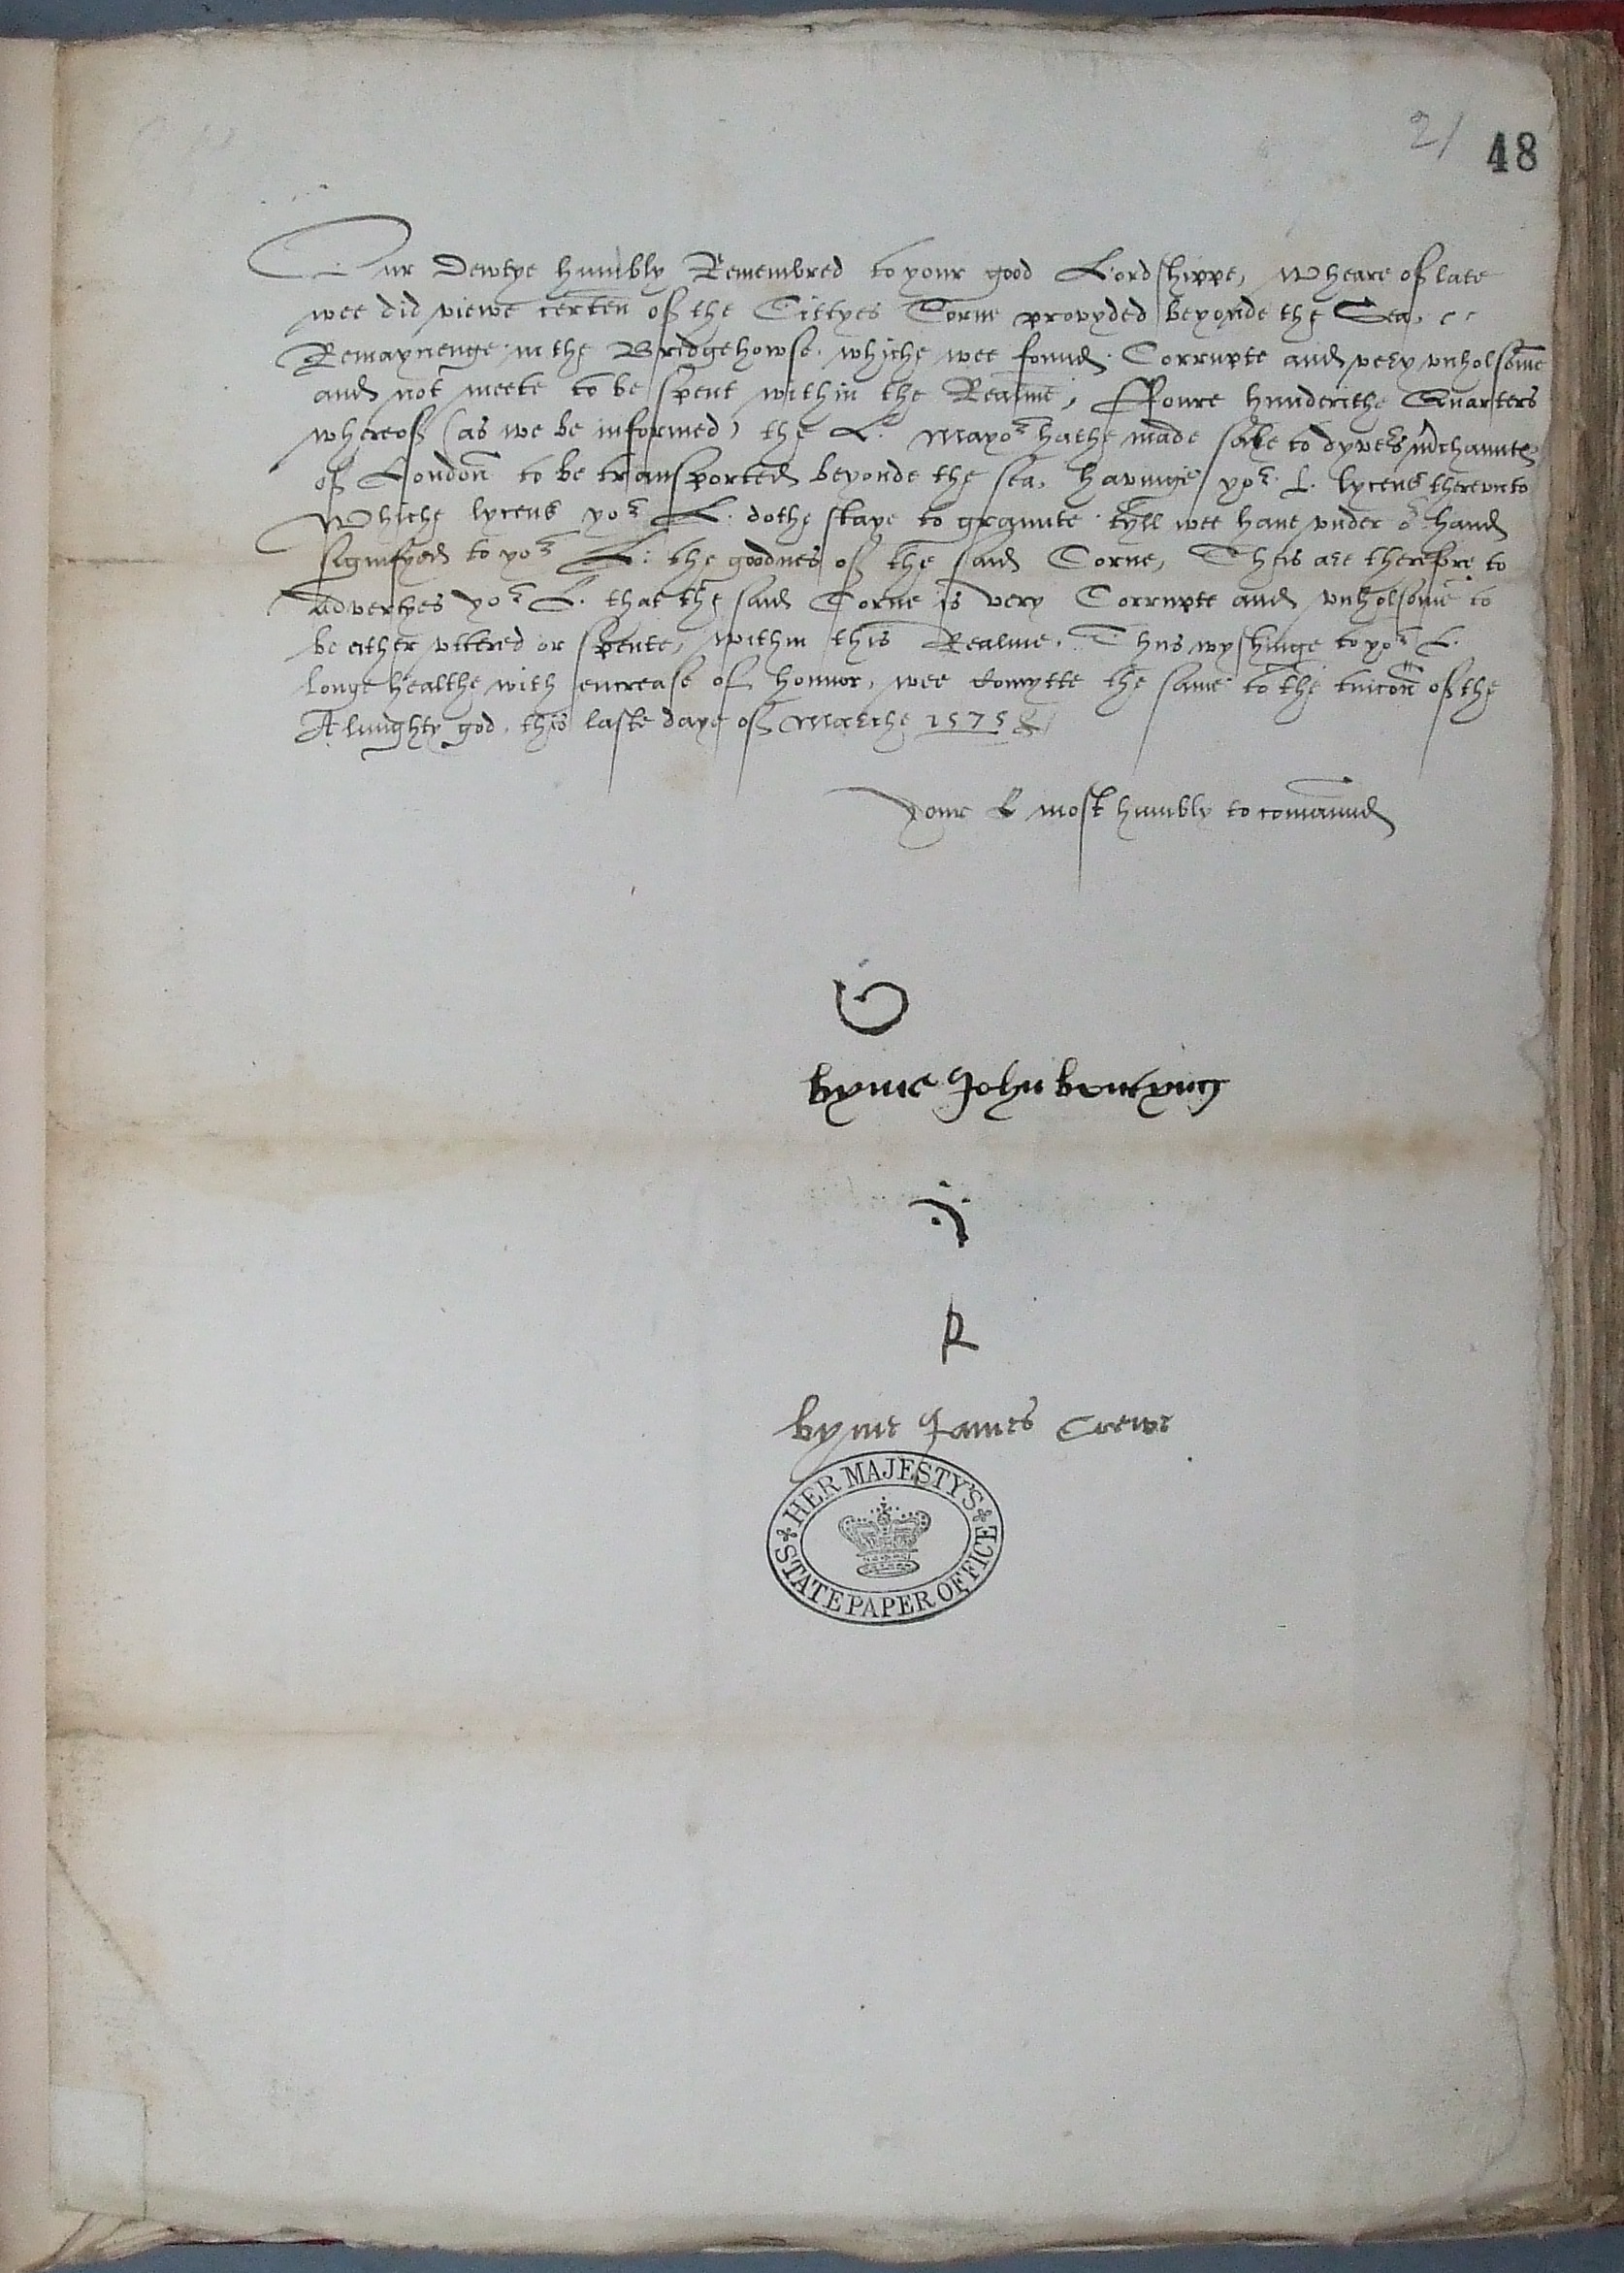 21
48
Our Dewtye humbly Remembred to your good Lordshippe, Wheare of late
wee did viewe certen of the Cittyes Corne provyded beyonde the Sea,
Remaynenge in the Bridgehowse, whiche wee found Corrupte and very vnholsome
and not meete to be spent within the Realme, ffoure hunderithe Quarters
whereof (as we be informed) the L. Mayor hathe made sale to dyvers mchaunts
of London to be transported beyonde the sea, havinge yor L. lycens therevnto
Whiche lycens yor L. dothe staye to graunte tyll wee have vnder or hand
signifyed to yor L: the goodnes of the said Corne, This are therefore to
advertyes yor L. that the said Corne is very Corrupte and vnholsome to
be either vttered or spente, within this Realme. Thus wyshinge to yor L.
longe healthe with encrease of honnor, wee comytte the same to the tuicon of the
Almighty god, this laste daye of Marche 1575
Your L most humbly to comaund
by me John
R
by me James Crewe
HER MAJESTY'S
STATE PAPER OFFICE